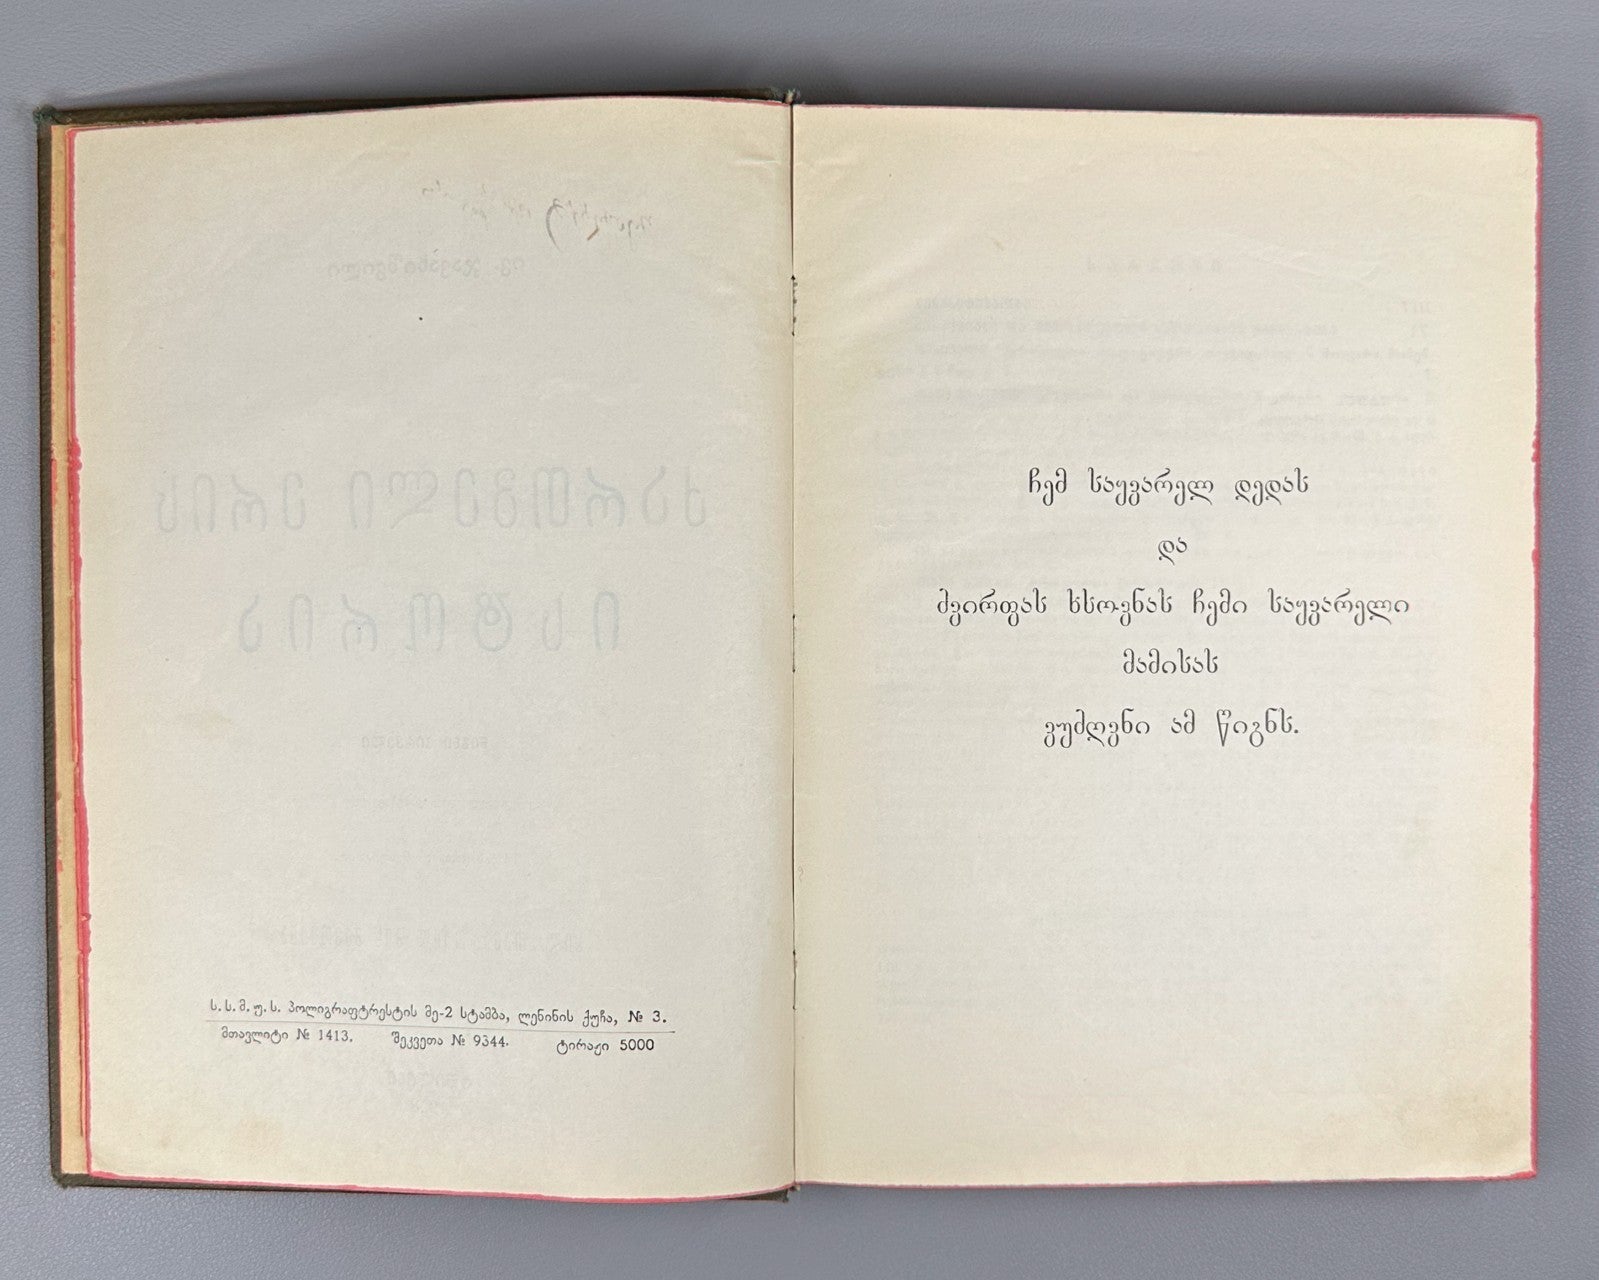 ს. ს. მ. უ. ს. პოლიგრაფტრესტის მე-2 სტამბა, ლენინის ქუჩა, № 3.
მთავლიტი № 1413. შეკვეთა № 9344. ტირაჟი 5000
ჩემ საყვარელ დედას
და
ძვირფას ხსოვნას ჩემი საყვარელი
მამისას
ვუძღვნი ამ წიგნს.